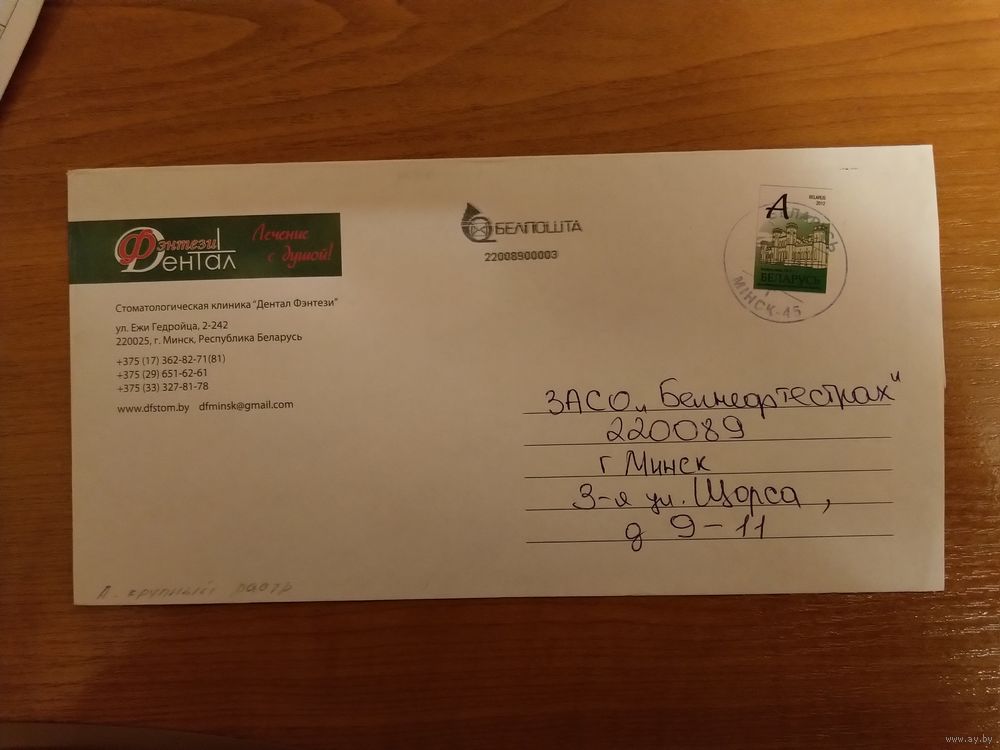 Фэнтези
Дентал
Лечение
с душой!
Стоматологическая клиника "Дентал Фэнтези"
ул. Ежи Гедройца, 2-242
220025, г. Минск, Республика Беларусь
+375 (17) 362-82-71(81)
+375 (29) 651-62-61
+375 (33) 327-81-78
www.dfstom.by dfminsk@gmail.com
БЕЛПОШТА
22008900003
A
BELARUS
2012
БЕЛАРУСЬ
БЕЛАРУСЬ
МІНСК-45
ЗАСО „Белнефтестрах"
220089
г Минск
3-я ул. Щорса,
д 9-11
А- крупный растр
www.ay.by